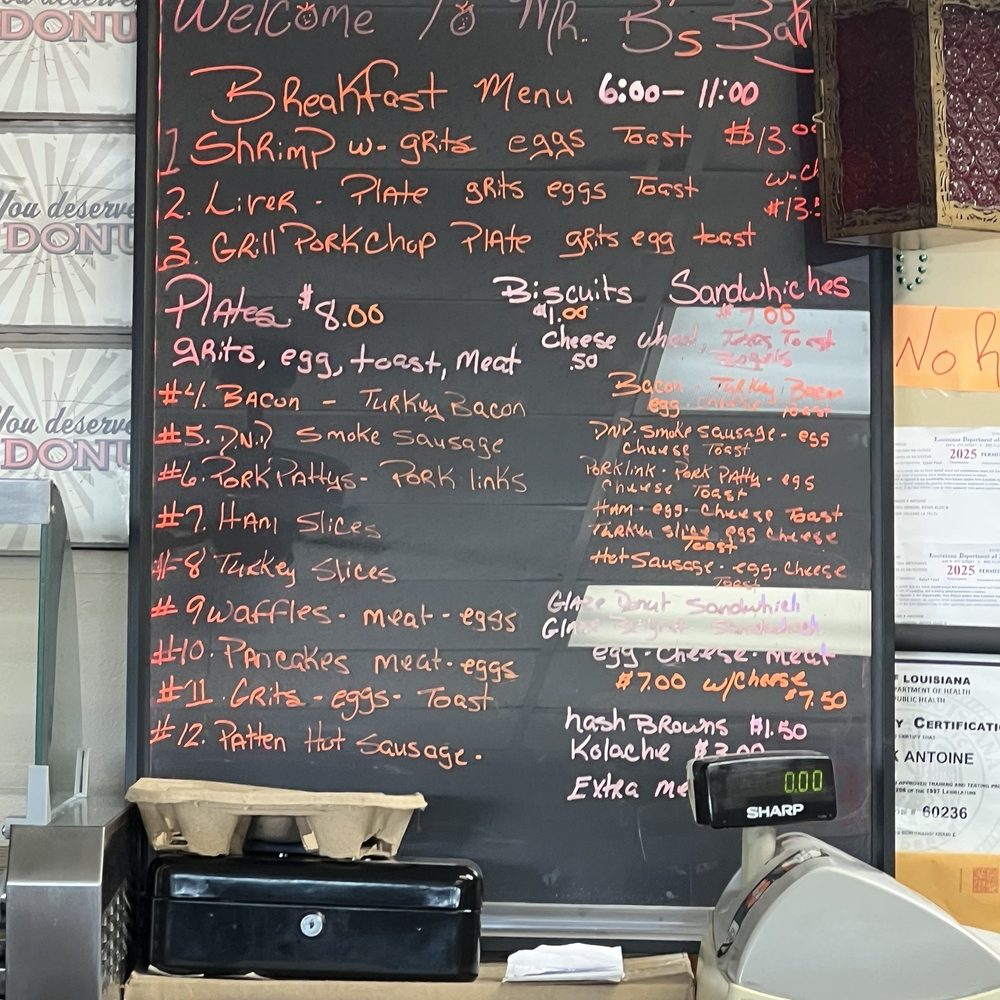 Welcome To Mr. B's
Breakfast Menu 6:00- 11:00
1 Shrimp w- grits eggs Toast $13.00
w.ch
2. Liver - Plate grits eggs Toast
$13.5
3. Grill Pork Chop Plate grits egg toast
Plates $8.00
grits, egg, toast, Meat
#4. Bacon - Turkey Bacon
#5. D.N.D Smoke Sausage
#6. Pork Pattys - Pork links
#7. Ham Slices
#8 Turkey Slices
#9 Waffles - meat - eggs
#10. Pancakes meat - eggs
#11. Grits - eggs - Toast
#12. Patten Hot Sausage.
Biscuits
$1.00
Cheese
.50
Sandwhiches
$7.00
Texas Toast
Bacon - Turkey Bacon
egg cheese toast
DND. Smoke sausage - egg
Cheese Toast
Pork link - Pork Patty - egg
Cheese Toast
Ham - egg - Cheese Toast
Turkey slice egg cheese
Toast
Hot Sausage - egg - Cheese
Toast
Glaze Donut Sandwhich
egg - Cheese - Meat
$7.00 w/Cheese
$7.50
hash Browns $1.50
Kolache $3.00
Extra me
0.00
SHARP
You deserve
DONU
You deserve
DONU
You deserve
DONU
No R
Louisiana Department of
2025 PERMI
Louisiana Department of
2025 PERMI
LOUISIANA
ARTMENT OF HEALTH
PUBLIC HEALTH
Y CERTIFICATI
K ANTOINE
60236